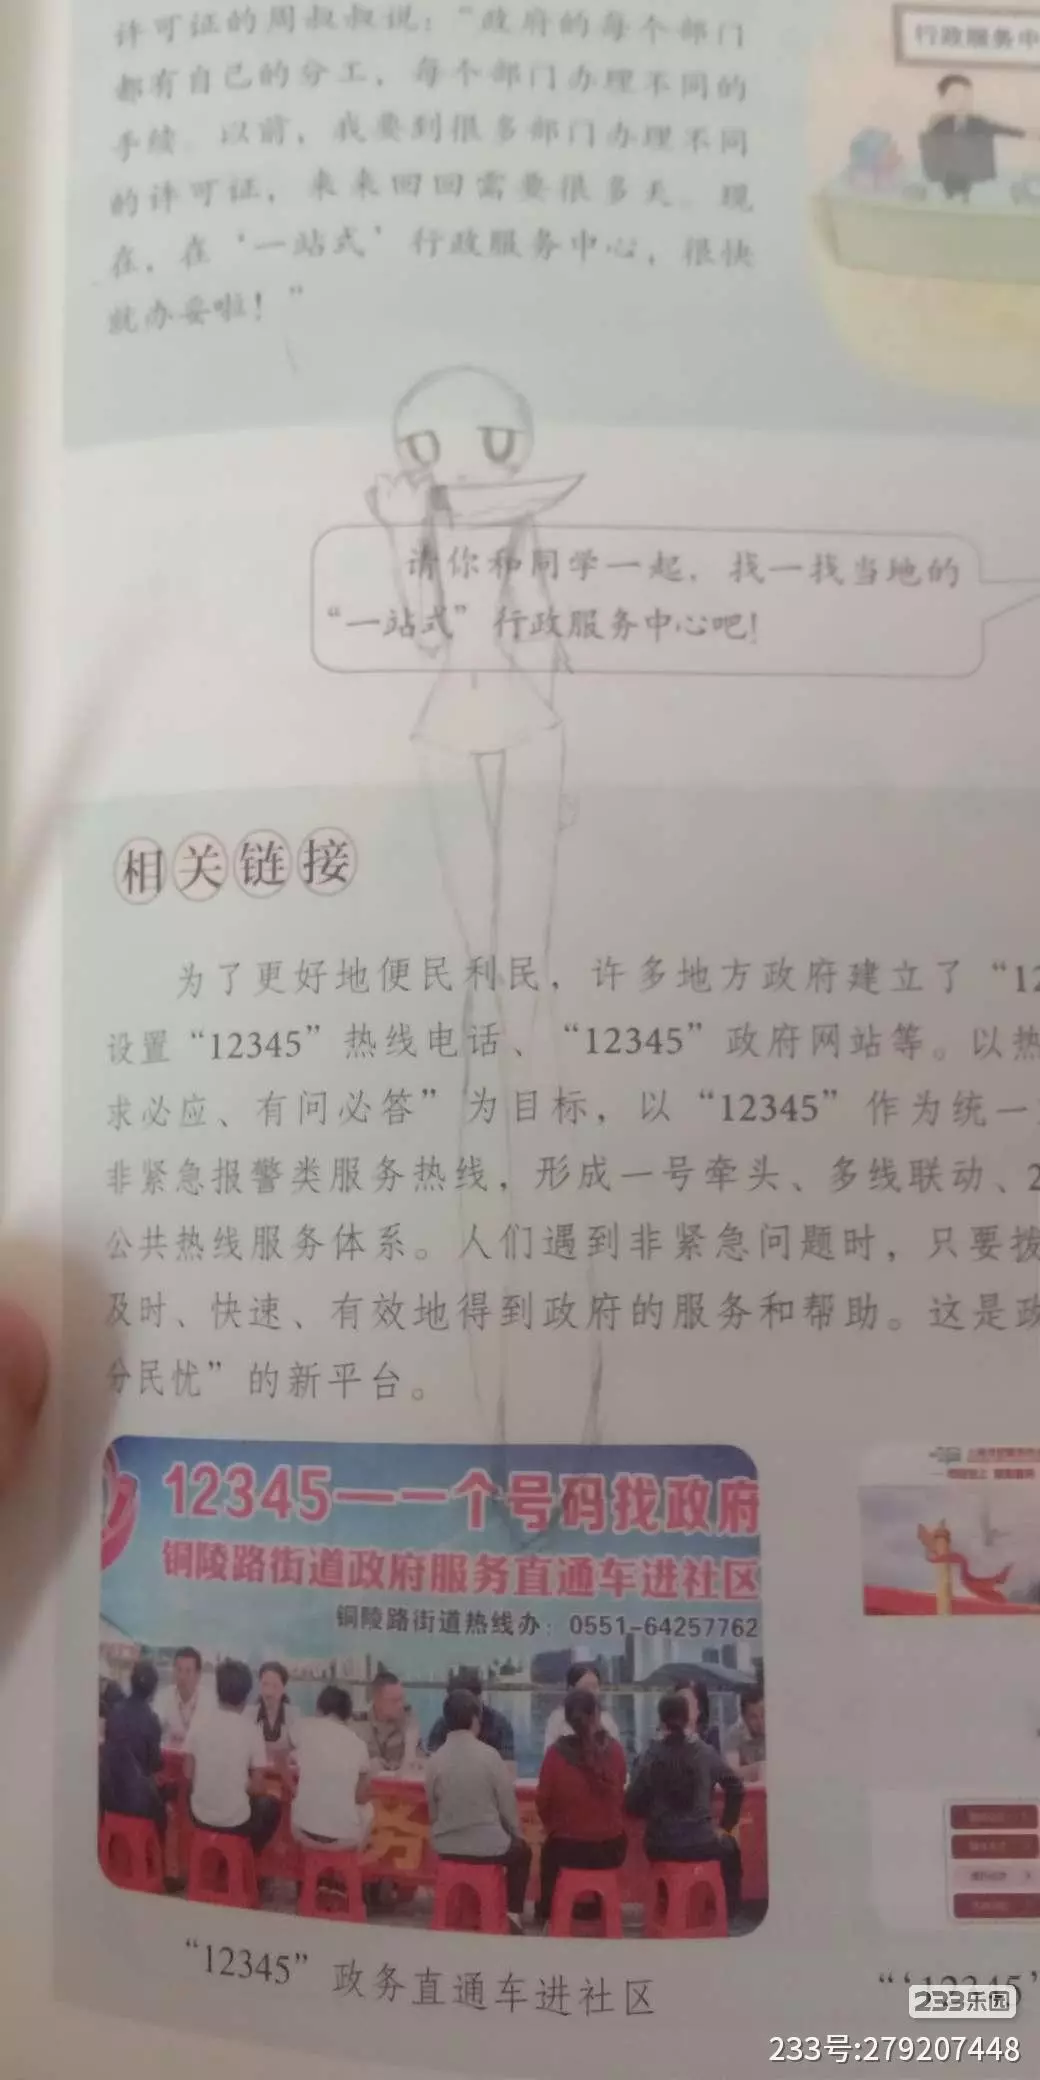 许可证的周叔叔说：“政府的每个部门
都有自己的分工，每个部门办理不同的
手续。以前，我要到很多部门办理不同
的许可证，来来回回需要很多天。现
在，在‘一站式’行政服务中心，很快
就办妥啦！”
行政服务中
请你和同学一起，找一找当地的
“一站式”行政服务中心吧！
相关链接
为了更好地便民利民，许多地方政府建立了“12
设置“12345”热线电话、“12345”政府网站等。以热
求必应、有问必答”为目标，以“12345”作为统一
非紧急报警类服务热线，形成一号牵头、多线联动、2
公共热线服务体系。人们遇到非紧急问题时，只要拨
及时、快速、有效地得到政府的服务和帮助。这是政
分民忧”的新平台。
12345—一个号码找政府
铜陵路街道政府服务直通车进社区
铜陵路街道热线办：0551-64257762
务
“12345”政务直通车进社区
“‘12345’
233乐园
233号:279207448